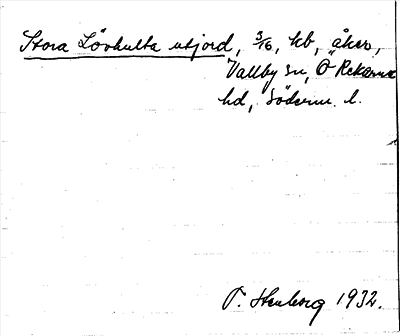 Stora Lövhulta utjord, 3/16, kb, åker,
Vallby sn, Ö Rekarne
hd, Söderm. l.
1932.